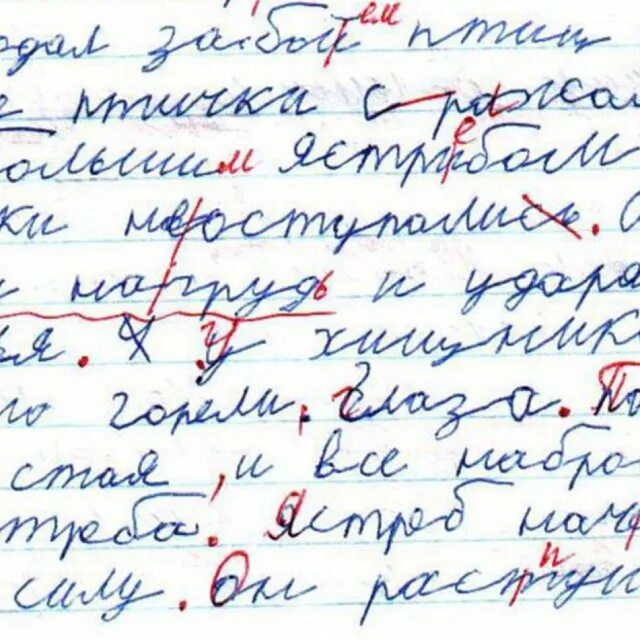 одал забой ем птиц
е птички с ража
большим ястребом
ки неоступались.
на грудь и удара
ья. У хищник
но горели, глаза. По
стая, и все набро
треба. Ястреб нач
силу. Он распу